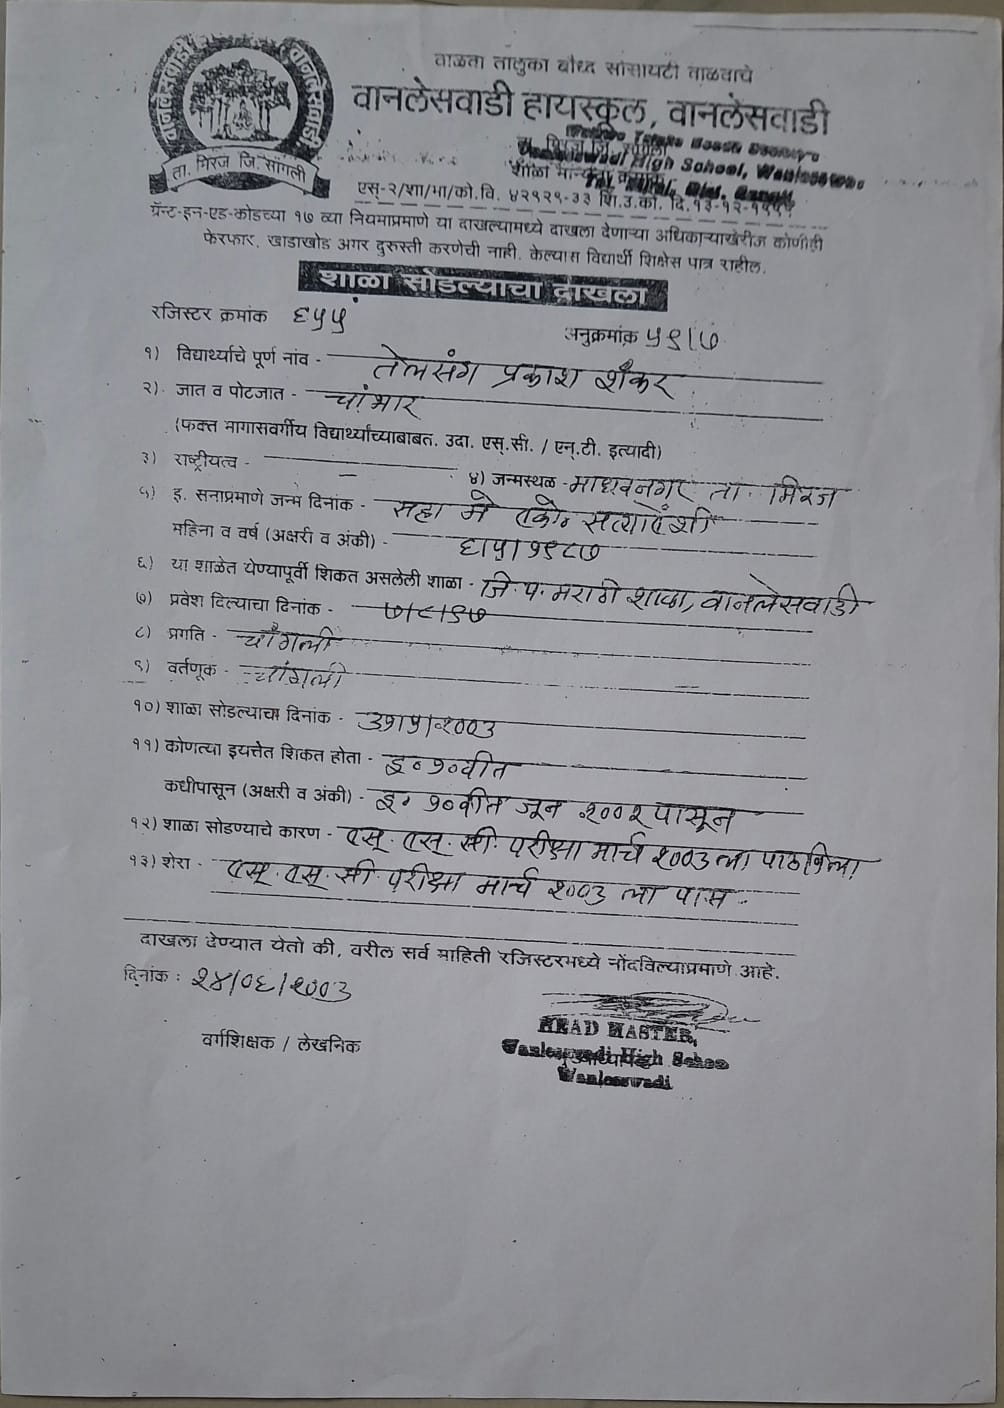 वाळवा तालुका बौध्द सोसायटी वाळवाचे
वानलेसवाडी हायस्कुल, वानलेसवाडी
वानलेसवाडी वानलेसवाडी
ता. मिरज जि. सांगली
High School,
शाळा मान्यता क्रमांक
एस्-२/शा/भा/को.वि. ४२९२९-३३ शि.उ.को. दि.१३-१२-१९५५
ग्रॅन्ट-इन-एड-कोडच्या १७ व्या नियमाप्रमाणे या दाखल्यामध्ये दाखला देणाऱ्या अधिकाऱ्याखेरीज कोणीही
फेरफार, खाडाखोड अगर दुरुस्ती करणेची नाही. केल्यास विद्यार्थी शिक्षेस पात्र राहील.
शाळा सोडल्याचा दाखला
रजिस्टर क्रमांक ६५५ अनुक्रमांक ५९/७
१) विद्यार्थ्याचे पूर्ण नांव - तेलसंग प्रकाश शंकर
२) जात व पोटजात - चांभार
(फक्त मागासवर्गीय विद्यार्थ्यांच्याबाबत. उदा. एस्.सी. / एन्.टी. इत्यादी)
३) राष्ट्रीयत्व - — ४) जन्मस्थळ - माधवनगर ता. मिरज
५) इ. सनाप्रमाणे जन्म दिनांक - सहा मे एकोण सत्याऐंशी
महिना व वर्ष (अक्षरी व अंकी) - ६/५/१९८७
६) या शाळेत येण्यापूर्वी शिकत असलेली शाळा - जि. प. मराठी शाळा, वानलेसवाडी
७) प्रवेश दिल्याचा दिनांक - ७/८/९७
८) प्रगति - चांगली
९) वर्तणूक - चांगली
१०) शाळा सोडल्याचा दिनांक - ३१/५/२००३
११) कोणत्या इयत्तेत शिकत होता - इ. १० वीत
कधीपासून (अक्षरी व अंकी) - इ. १० वीत जून २००२ पासून
१२) शाळा सोडण्याचे कारण - एस्. एस्. सी. परीक्षा मार्च २००३ ला पाठविला
१३) शेरा - एस्. एस्. सी. परीक्षा मार्च २००३ ला पास.
दाखला देण्यात येतो की, वरील सर्व माहिती रजिस्टरमध्ये नोंदविल्याप्रमाणे आहे.
दिनांक : २४/०६/२००३
वर्गशिक्षक / लेखनिक
HEAD MASTER,
Wanlesswadi High School
Wanlesswadi